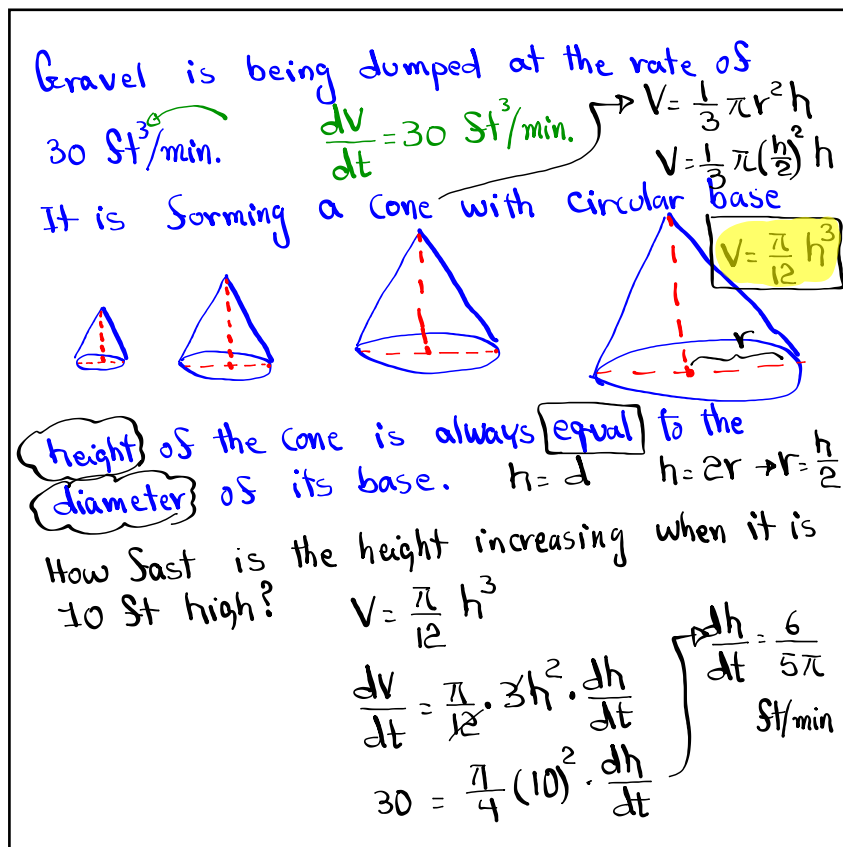 Gravel is being dumped at the rate of
30 ft³/min. dV/dt = 30 ft³/min. V = 1/3 πr²h
V = 1/3 π(h/2)² h
It is forming a cone with circular base
V = π/12 h³
r
height of the cone is always equal to the
diameter of its base. h = d h = 2r → r = h/2
How fast is the height increasing when it is
10 ft high? V = π/12 h³
dh/dt = 6/5π
ft/min
dV/dt = π/12 · 3h² · dh/dt
30 = π/4 (10)² · dh/dt